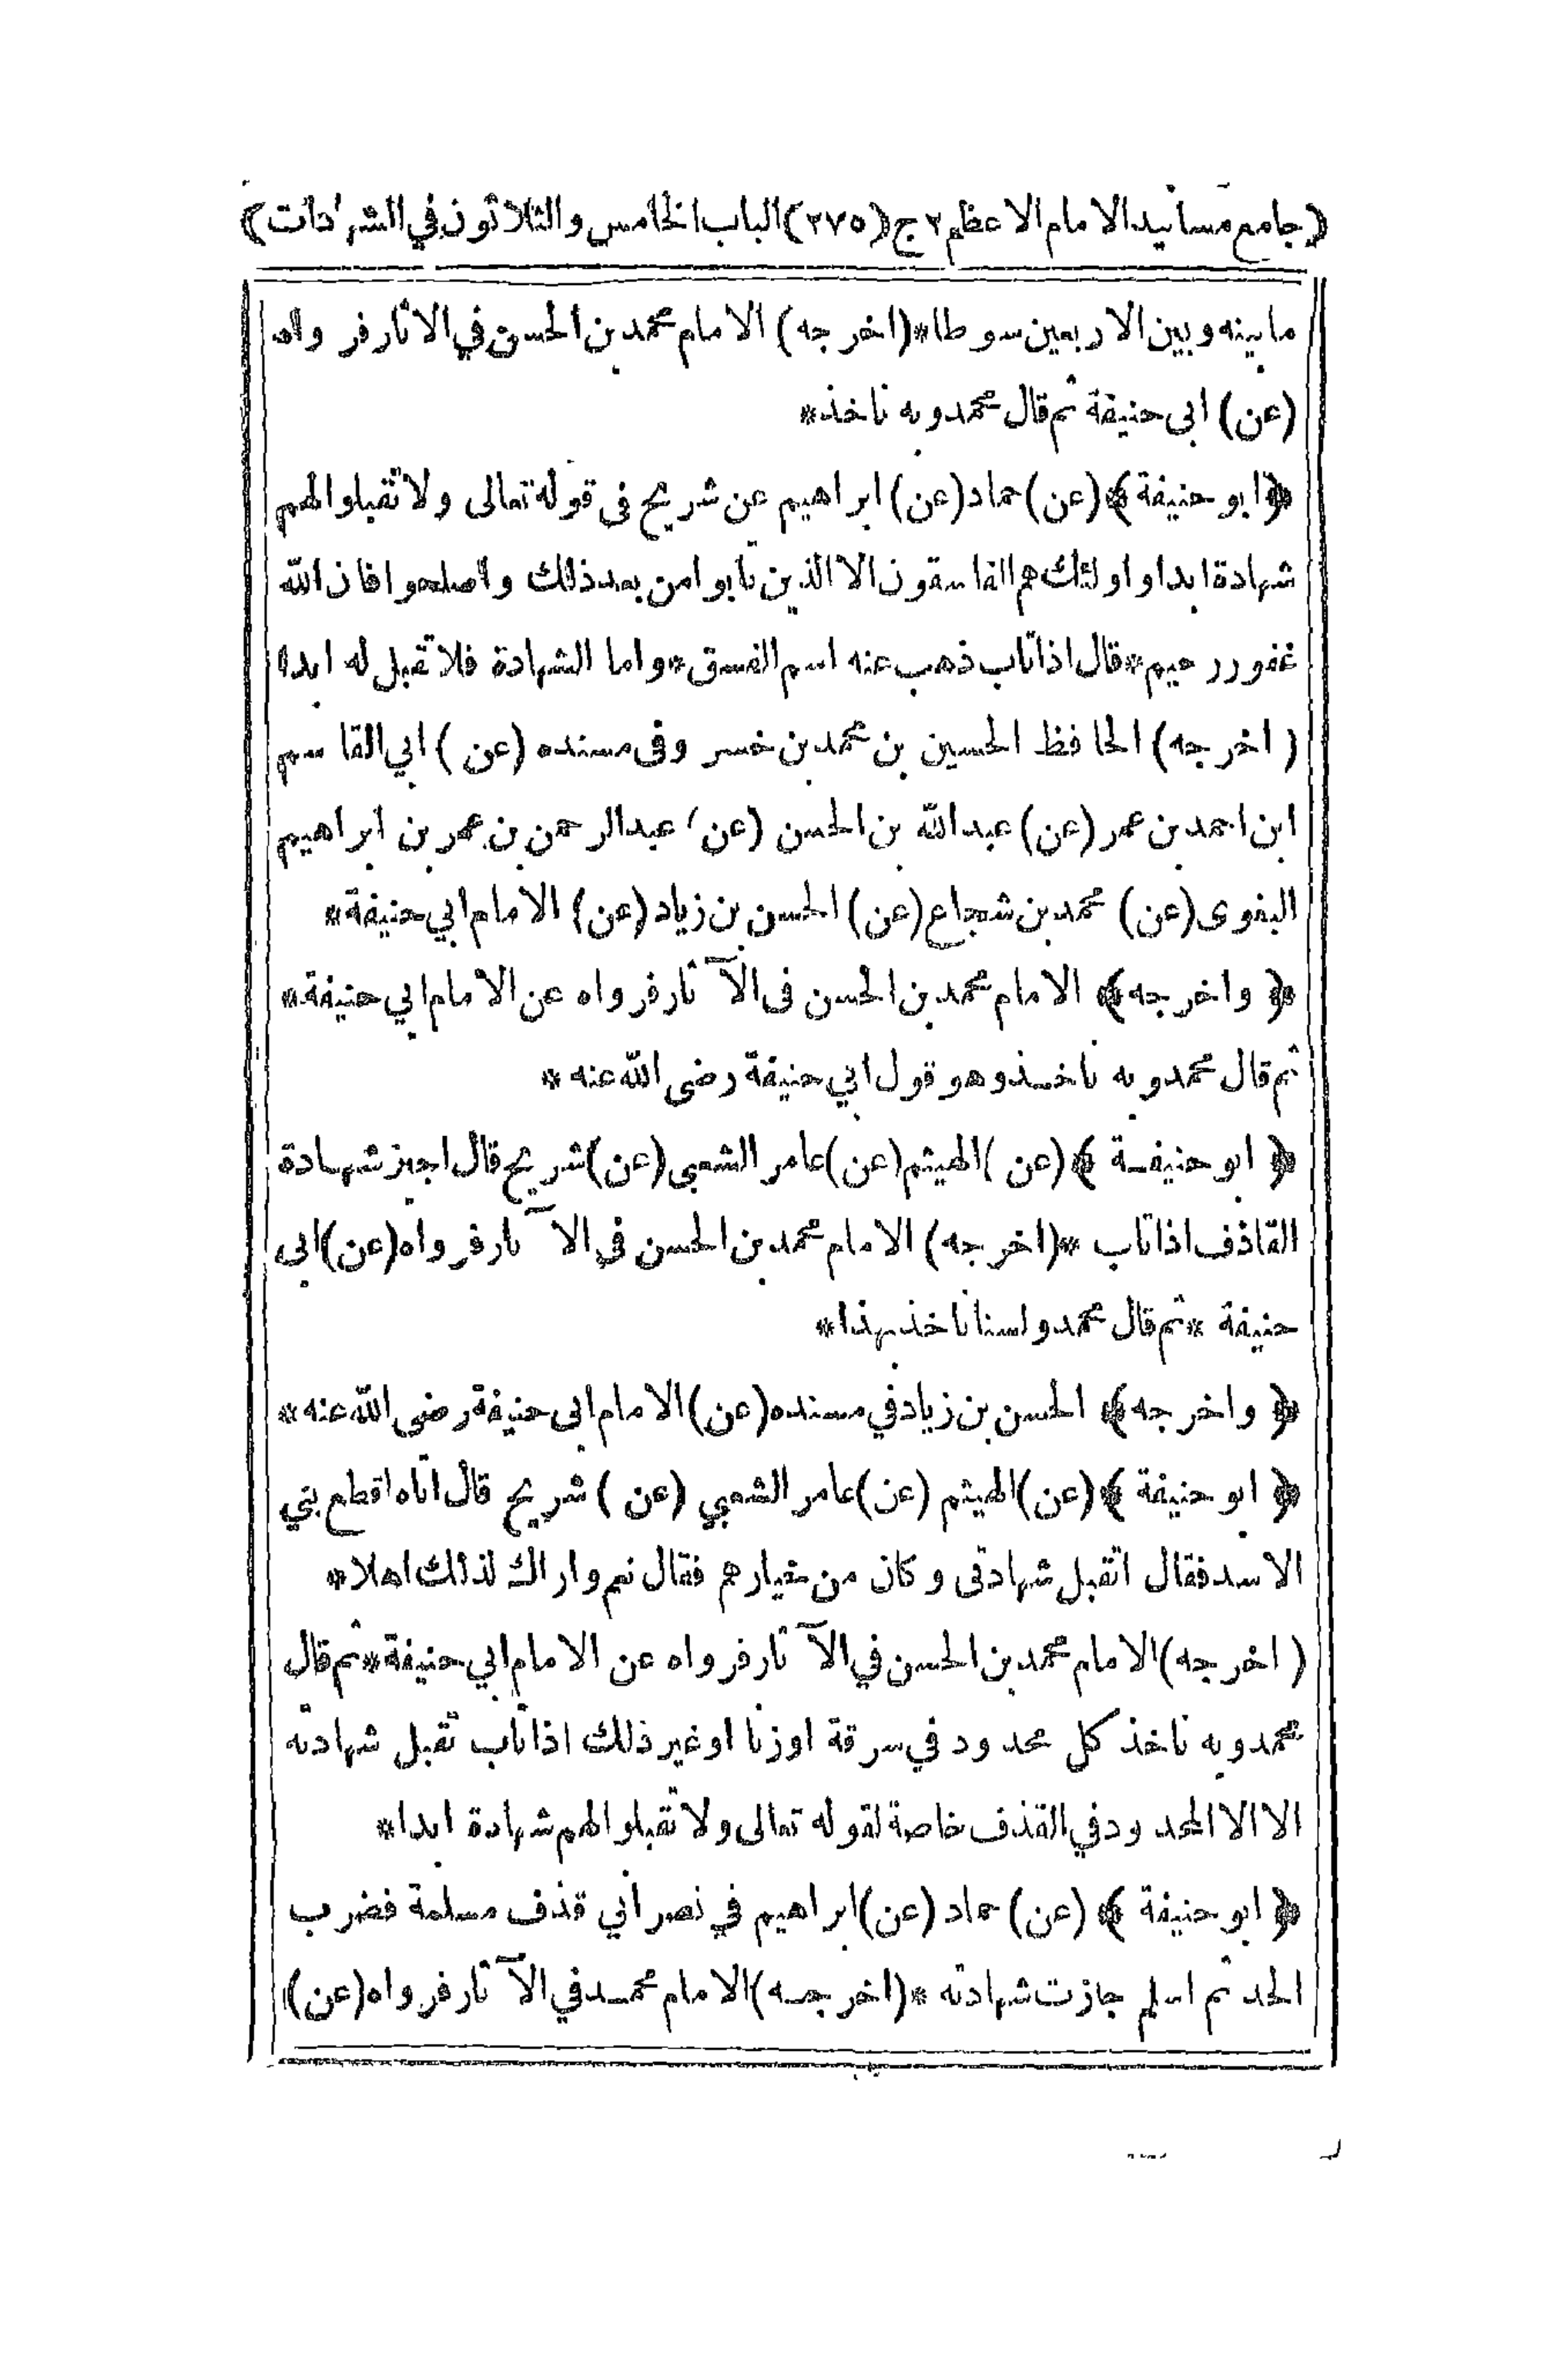 (جامع مسانيد الامام الاعظم ٢ ج) (٢٧٥) (الباب الخامس والثلاثون في الشهادات)
ما بينه وبين الاربعين سوطا*(اخرجه) الامام محمد بن الحسن في الاثار فرواه
(عن) ابى حنيفة ثم قال محمد وبه ناخذ*
﴿ابو حنيفة﴾(عن) حماد (عن) ابراهيم عن شريح فى قوله تعالى ولا تقبلوا لهم
شهادة ابدا واولئك هم الفاسقون الا الذين تابوا من بعد ذلك واصلحوا فان الله
غفور رحيم*قال اذا تاب ذهب عنه اسم الفسق*واما الشهادة فلا تقبل له ابدا
(اخرجه) الحافظ الحسين بن محمد بن خسرو فى مسنده (عن) ابي القاسم
ابن احمد بن عمر (عن) عبد الله بن الحسن (عن) عبد الرحمن بن عمر بن ابراهيم
البغوى (عن) محمد بن شجاع (عن) الحسن بن زياد (عن) الامام ابي حنيفة*
﴿واخرجه﴾ الامام محمد بن الحسن فى الآثار فرواه عن الامام ابي حنيفة*
ثم قال محمد وبه ناخذ وهو قول ابي حنيفة رضى الله عنه *
﴿ابو حنيفة﴾ (عن) الهيثم (عن) عامر الشعبى (عن) شريح قال اجيز شهادة
القاذف اذا تاب *(اخرجه) الامام محمد بن الحسن في الآثار فرواه (عن) ابى
حنيفة *ثم قال محمد ولسنا ناخذ بهذا*
﴿واخرجه﴾ الحسن بن زياد في مسنده (عن) الامام ابى حنيفة رضى الله عنه*
﴿ابو حنيفة﴾ (عن) الهيثم (عن) عامر الشعبي (عن) شريح قال اتاه اقطع بني
الاسد فقال اتقبل شهادتى وكان من خيارهم فقال نعم واراك لذلك اهلا*
(اخرجه) الامام محمد بن الحسن في الآثار فرواه عن الامام ابي حنيفة*ثم قال
محمد وبه ناخذ كل محدود في سرقة اوزنا او غير ذلك اذا تاب تقبل شهادته
الا الا المحدود في القذف خاصة لقوله تعالى ولا تقبلوا لهم شهادة ابدا*
﴿ابو حنيفة﴾ (عن) حماد (عن) ابراهيم في نصراني قذف مسلمة فضرب
الحد ثم اسلم جازت شهادته *(اخرجه) الامام محمد في الآثار فرواه (عن)